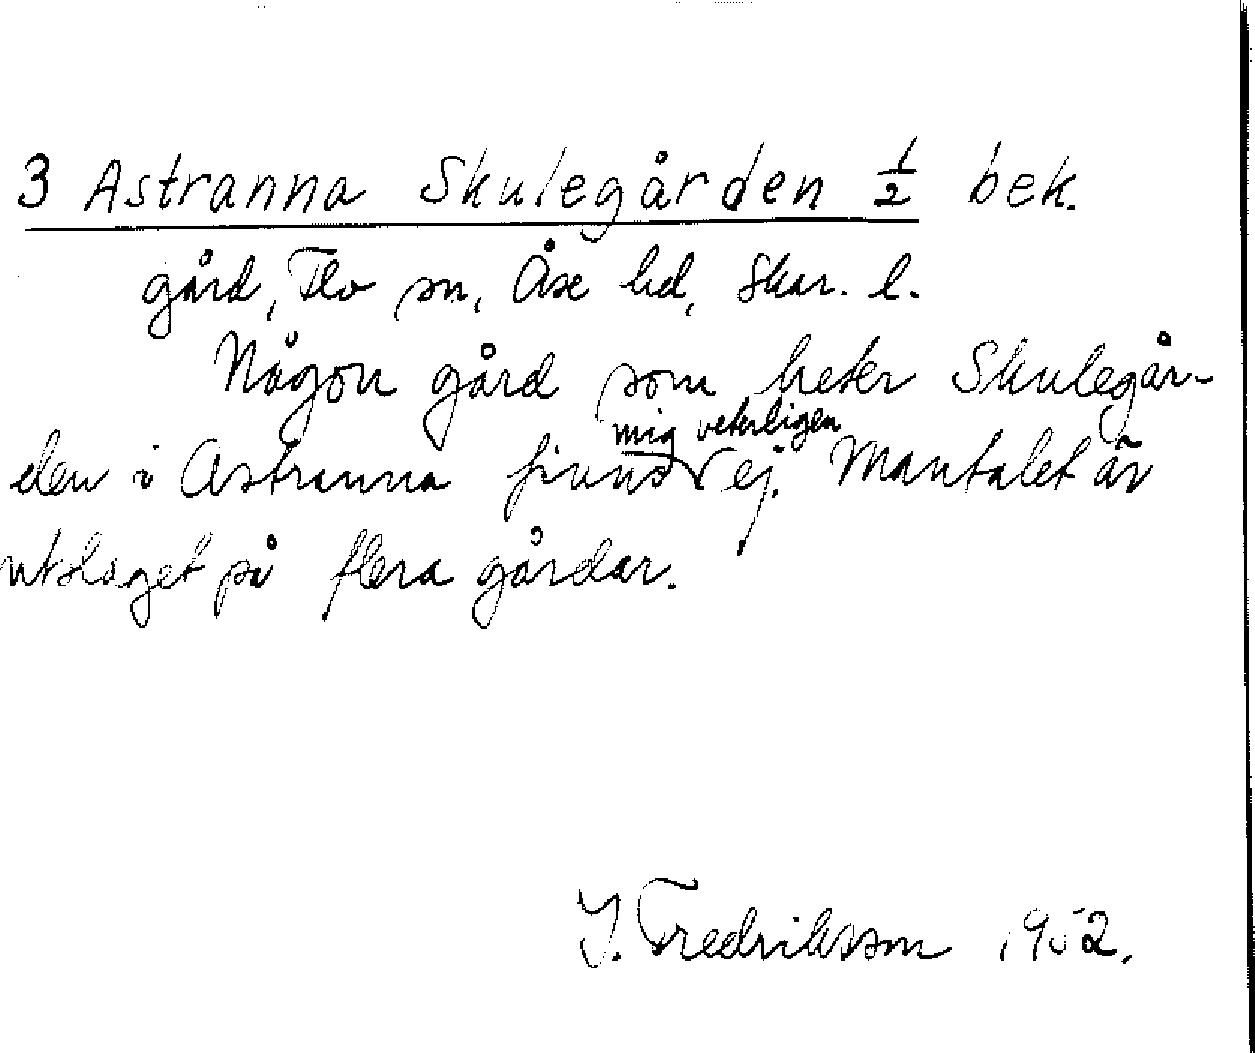 3 Astranna Skulegården 1/2 bek.
gård, Flo sn, Åse hd, Skar. l.
Någon gård som heter Skulegår-
mig veterligen
den i Astranna finns √ ej. Mantalet är
utslaget på flera gårdar.
Y. Fredriksson 1952.